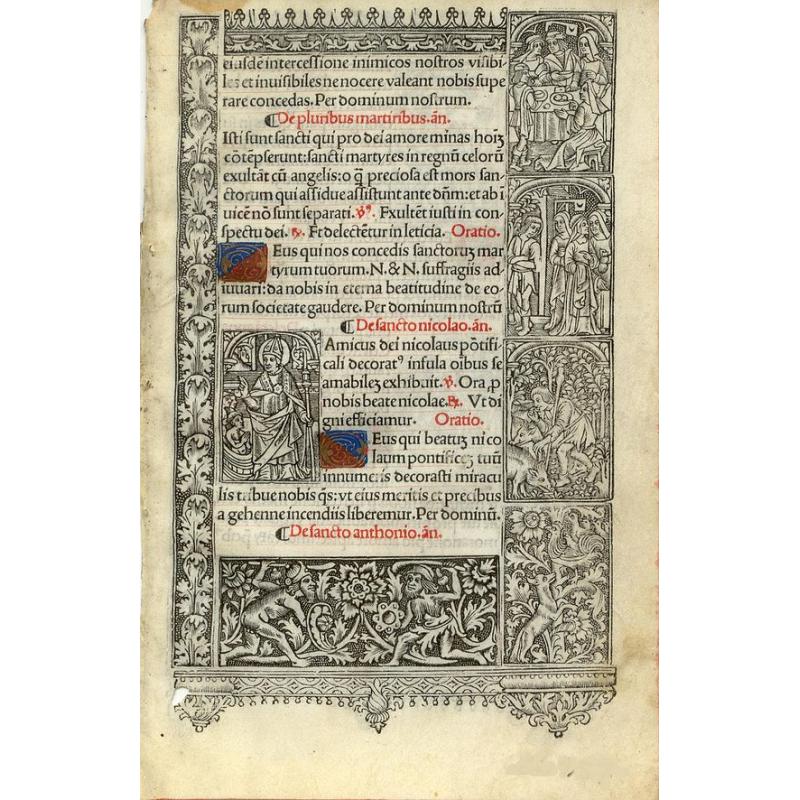 eiusdē intercessione inimicos nostros visibi-
les et inuisibiles ne nocere valeant nobis supe
rare concedas. Per dominum nosrum.
⸿De pluribus martiribus. añ.
Isti sunt sancti qui pro dei amore minas hoīȝ
cōtēpserunt: sancti martyres in regnū celorū
exultāt cū angelis: o q̄ preciosa est mors san-
ctorum qui assidue assistunt ante dñm: et ab ī
uicē nō sunt separati. ℣ꝰ. Exultēt iusti in con-
spectu dei. ℞. Et delectētur in leticia. Oratio.
Eus qui nos concedis sanctoruȝ mar
tyrum tuorum. N. & N. suffragiis ad
iuuari: da nobis in eterna beatitudine de eo-
rum societate gaudere. Per dominum nostrū
⸿De sancto nicolao. añ.
Amicus dei nicolaus pōtifi-
cali decoratꝰ infula oībus se
amabileȝ exhibuit. ℣. Ora ꝓ
nobis beate nicolae. ℞. Vt di
gni efficiamur. Oratio.
Eus qui beatuȝ nico
laum pontificeȝ tuū
innumeris decorasti miracu
lis tribue nobis q̄s: vt eius meritis et precibus
a gehenne incendiis liberemur. Per dominū.
⸿De sancto anthonio. añ.